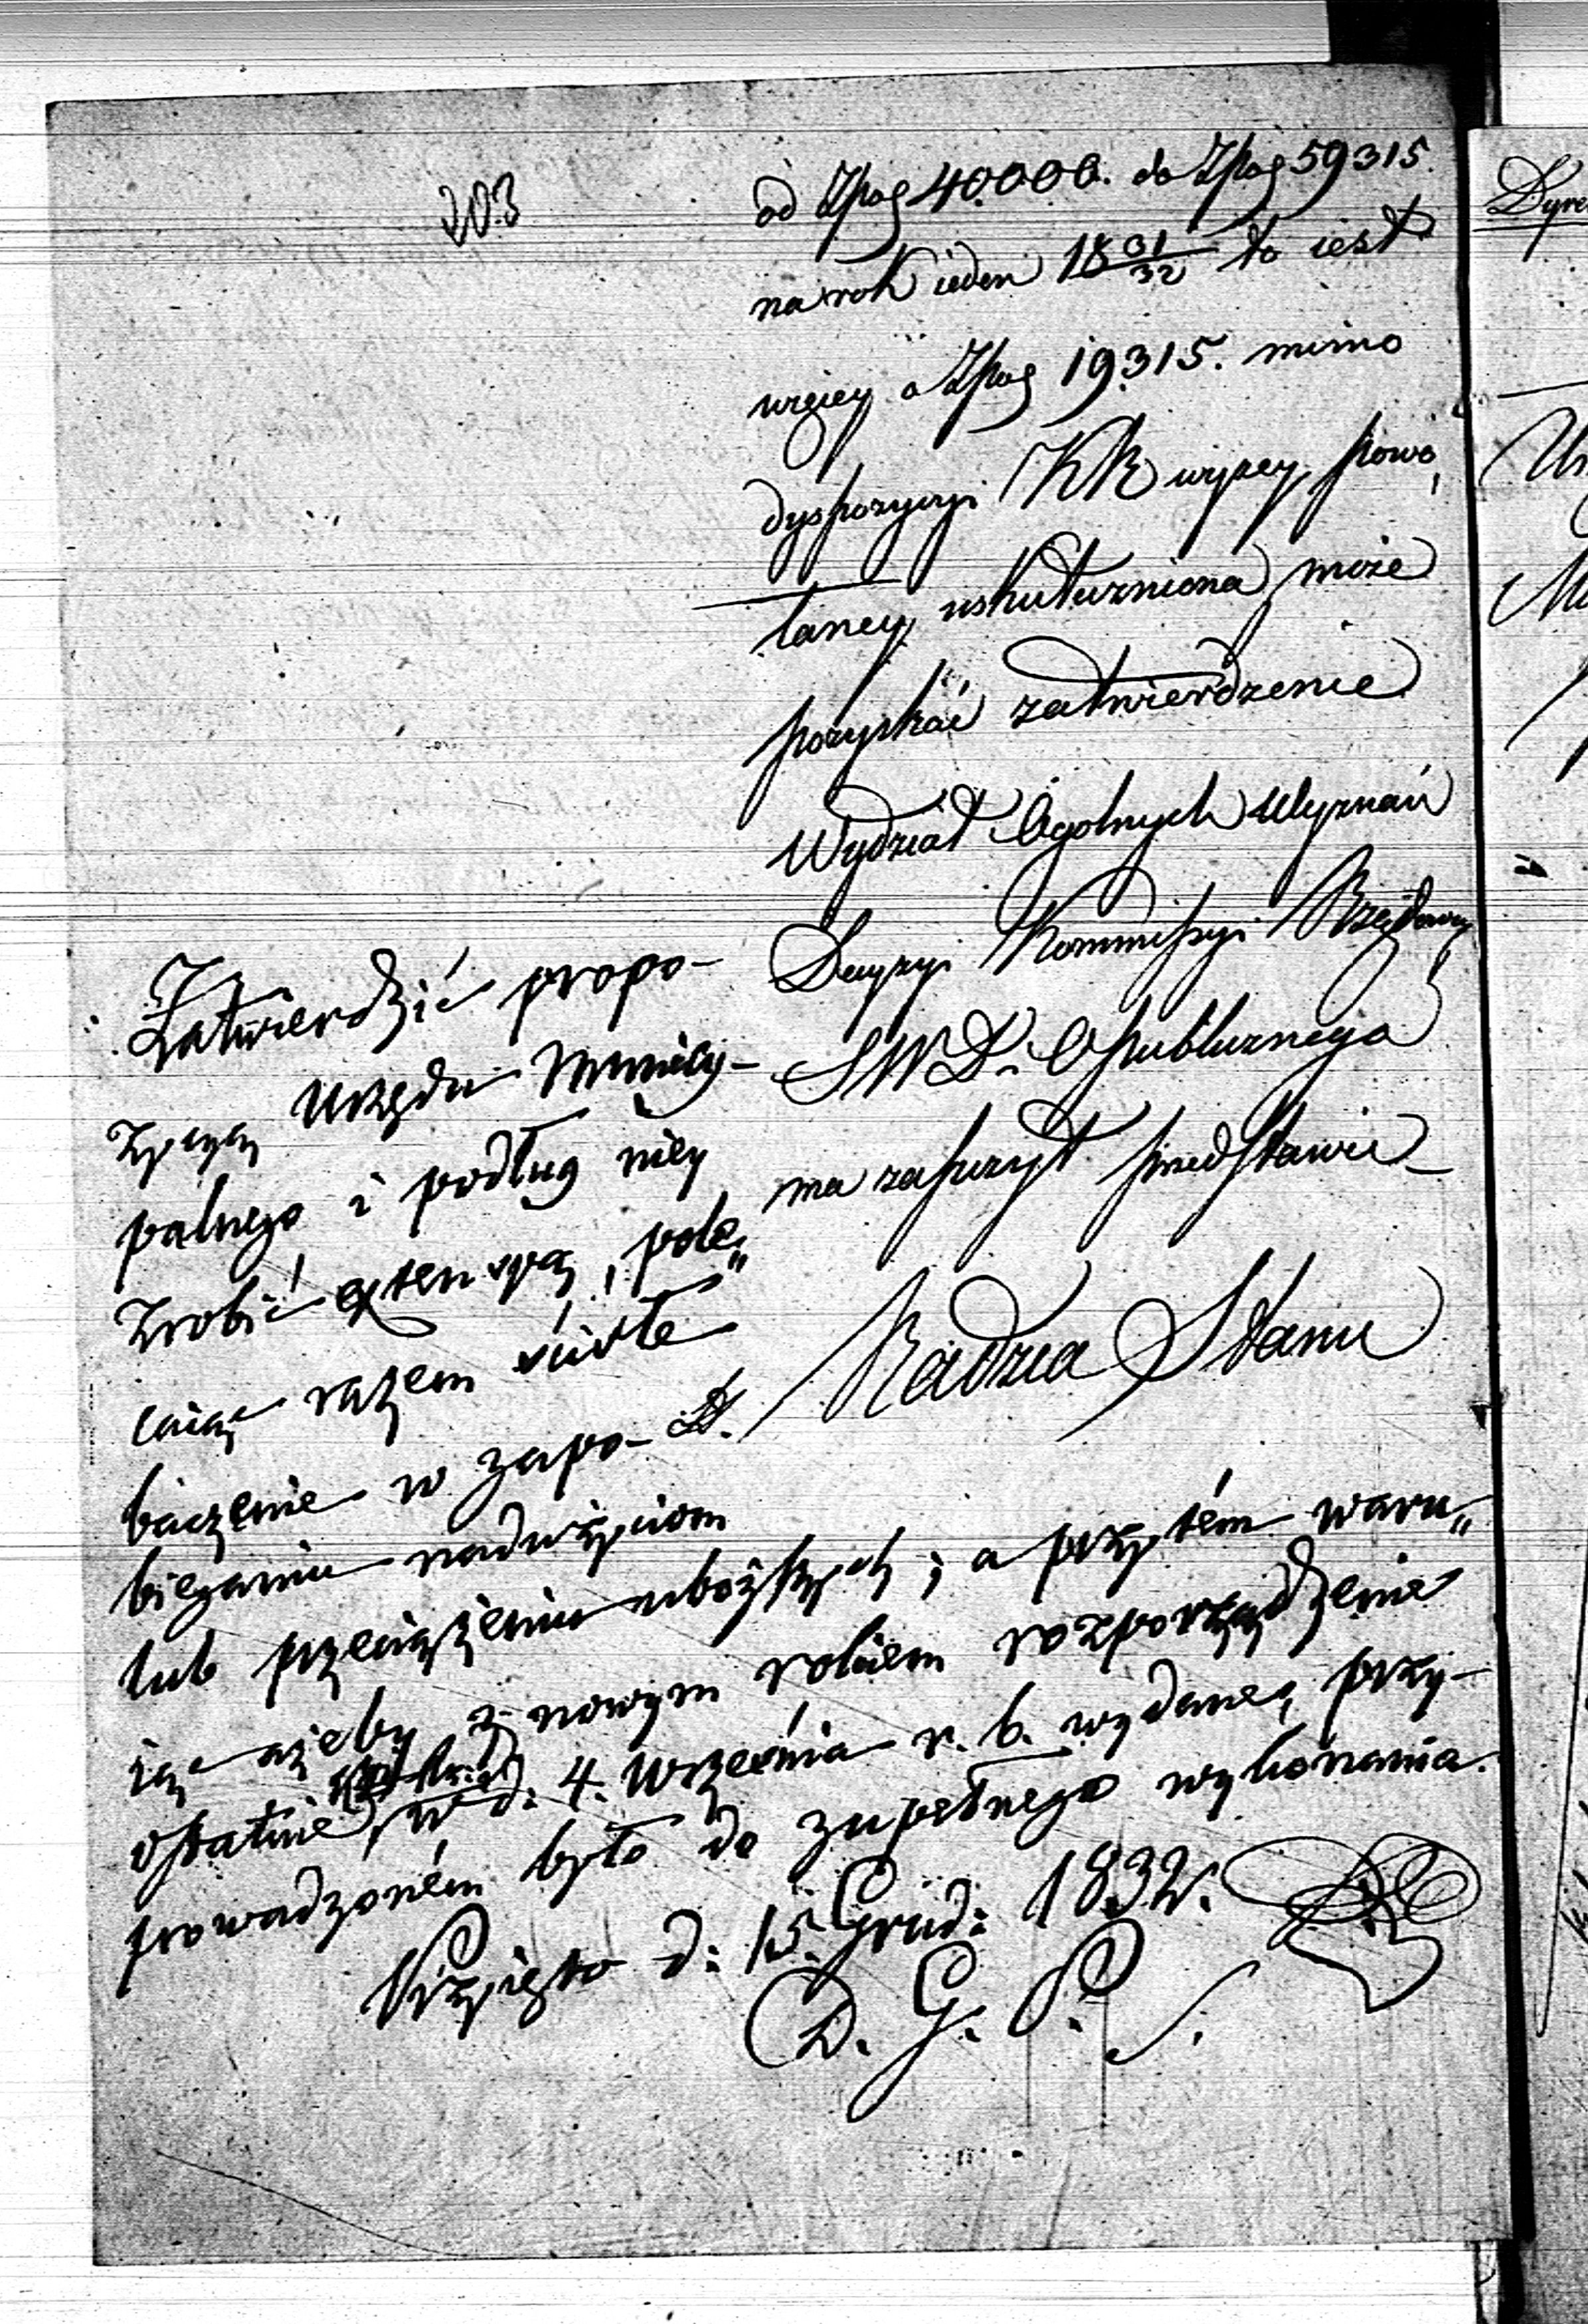 203
od Zpag 40.000. do Zpag 59315.
na rok ieden 18 31/32 to iest
więcey o Zpag 19.315. mimo
dyspozycyi KR wyzey powo,
laney, uskuteczniona może
pozyskać zatwierdzenie
Wydział Ogolnych Wyznań
Decyzyi Kommissyi Rządowey
SWD. Opubliznego
ma zaszczyt przedstawić
Radzca Stanu
Zatwierdzić propo-
zycyą Urzędu Munícy-
palnego i podług niey
zrobić extensyą, pole„
caiąc razem ścisłe
baczenie w zapo-
bieganiu nadużyciom
lub przeciążeniu uboższych; a przytém waru„
iąc ażeby z nowym rokiem rozporządzenie
ostatnie w d. 4. Września r. b. wydane, przy-
prowadzoném było do zupełnego wykonania.
Przyięto d: 15. Grud: 1832 r.
D. G. P.